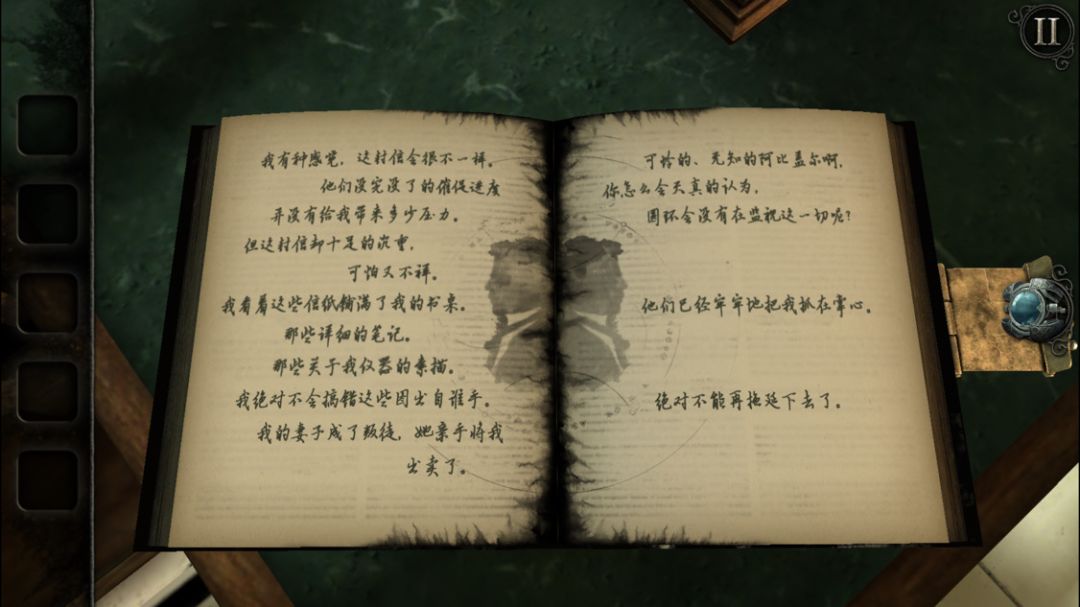 我有种感觉，这封信会很不一样。
他们没完没了的催促进度
并没有给我带来多少压力。
但这封信却十足的沉重，
可怕又不祥。
我看着这些信纸铺满了我的书桌。
那些详细的笔记。
那些关于我仪器的素描。
我绝对不会搞错这些图出自谁手。
我的妻子成了叛徒，她亲手将我
出卖了。
可怜的、无知的阿比盖尔啊，
你怎么会天真的认为，
圆环会没有在监视这一切呢？
他们已经牢牢地把我抓在掌心。
绝对不能再拖延下去了。
II